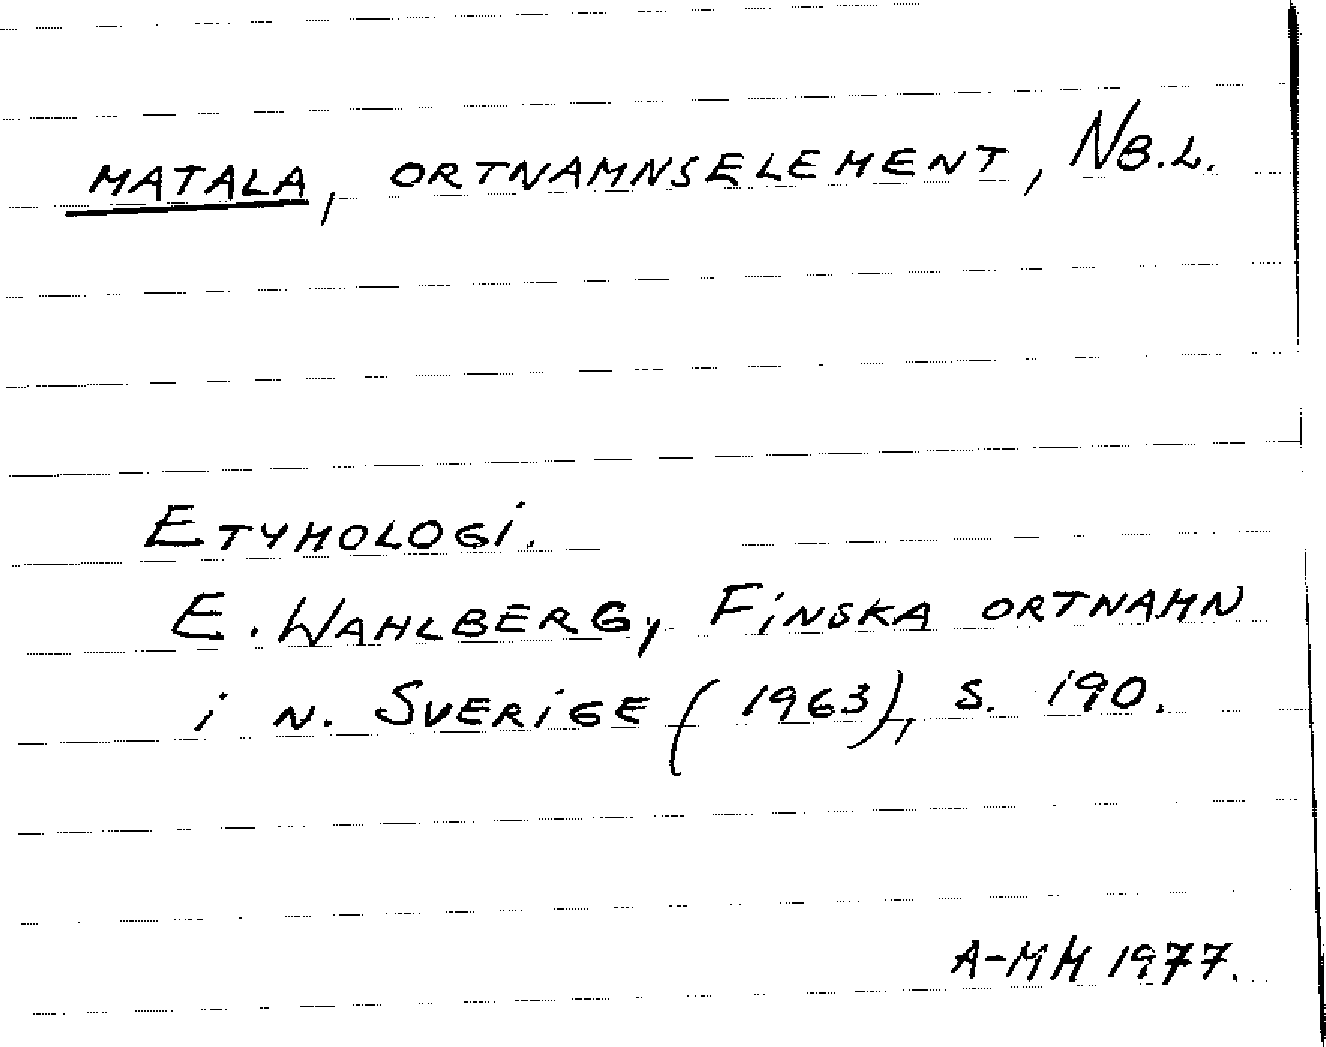 MATALA, ORTNAMNSELEMENT, NB.L.
ETYMOLOGi.
E. WAHLBERG, FiNSKA ORTNAMN
i N. SVERiGE (1963), S. 190.
A-MH 1977.